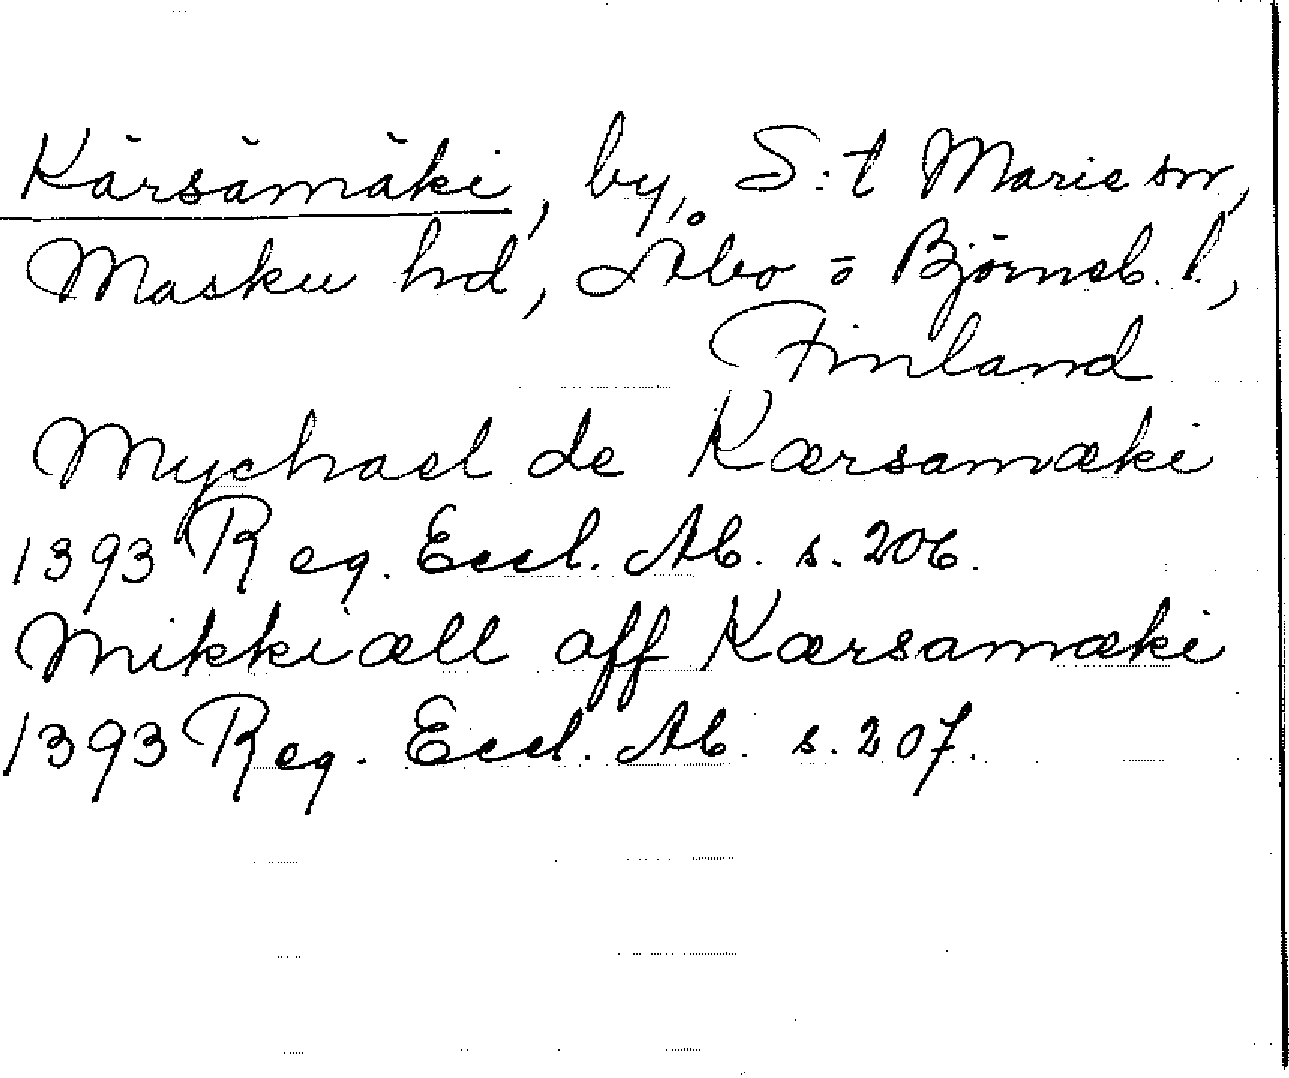 Kärsämäki, by, S:t Marie sn,
Masku hd, Åbo o Björneb. l.,
Finland
Mychael de Kærsamæki
1393 Reg. Eccl. Ab. s. 206.
Mikkiæll aff Kærsamæki
1393 Reg. Eccl. Ab. s. 207.